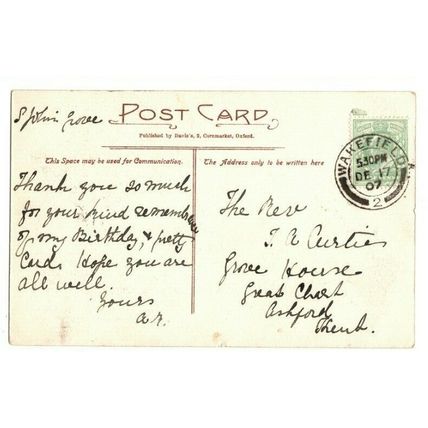 Grove
POST CARD
Published by Davis's, 2, Cornmarket, Oxford.
This Space may be used for Communication.
The Address only to be written here
WAKEFIELD
5 30 PM
DE 17
07
2
Thank you so much
for your kind remembrance
of my Birthday, & pretty
Card. Hope you are
all well.
Yours
The Rev
Curties
Grove House
Great Chart
Ashford
Kent.